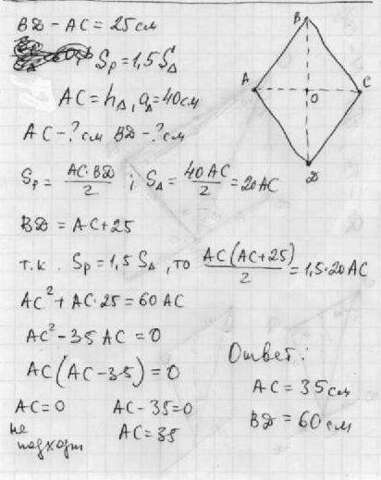 BD - AC = 25 см
Sр = 1,5 S△
AC = h△, a△ = 40 см
AC - ? см BD - ? см
Sр = AC·BD/2 ; S△ = 40AC/2 = 20AC
BD = AC + 25
т.к. Sр = 1,5 S△, то AC(AC+25)/2 = 1,5·20AC
AC² + AC·25 = 60AC
AC² - 35 AC = 0
AC(AC - 35) = 0
AC = 0 AC - 35 = 0
не подходит AC = 35
Ответ:
AC = 35 см
BD = 60 см
B
A
O
C
D